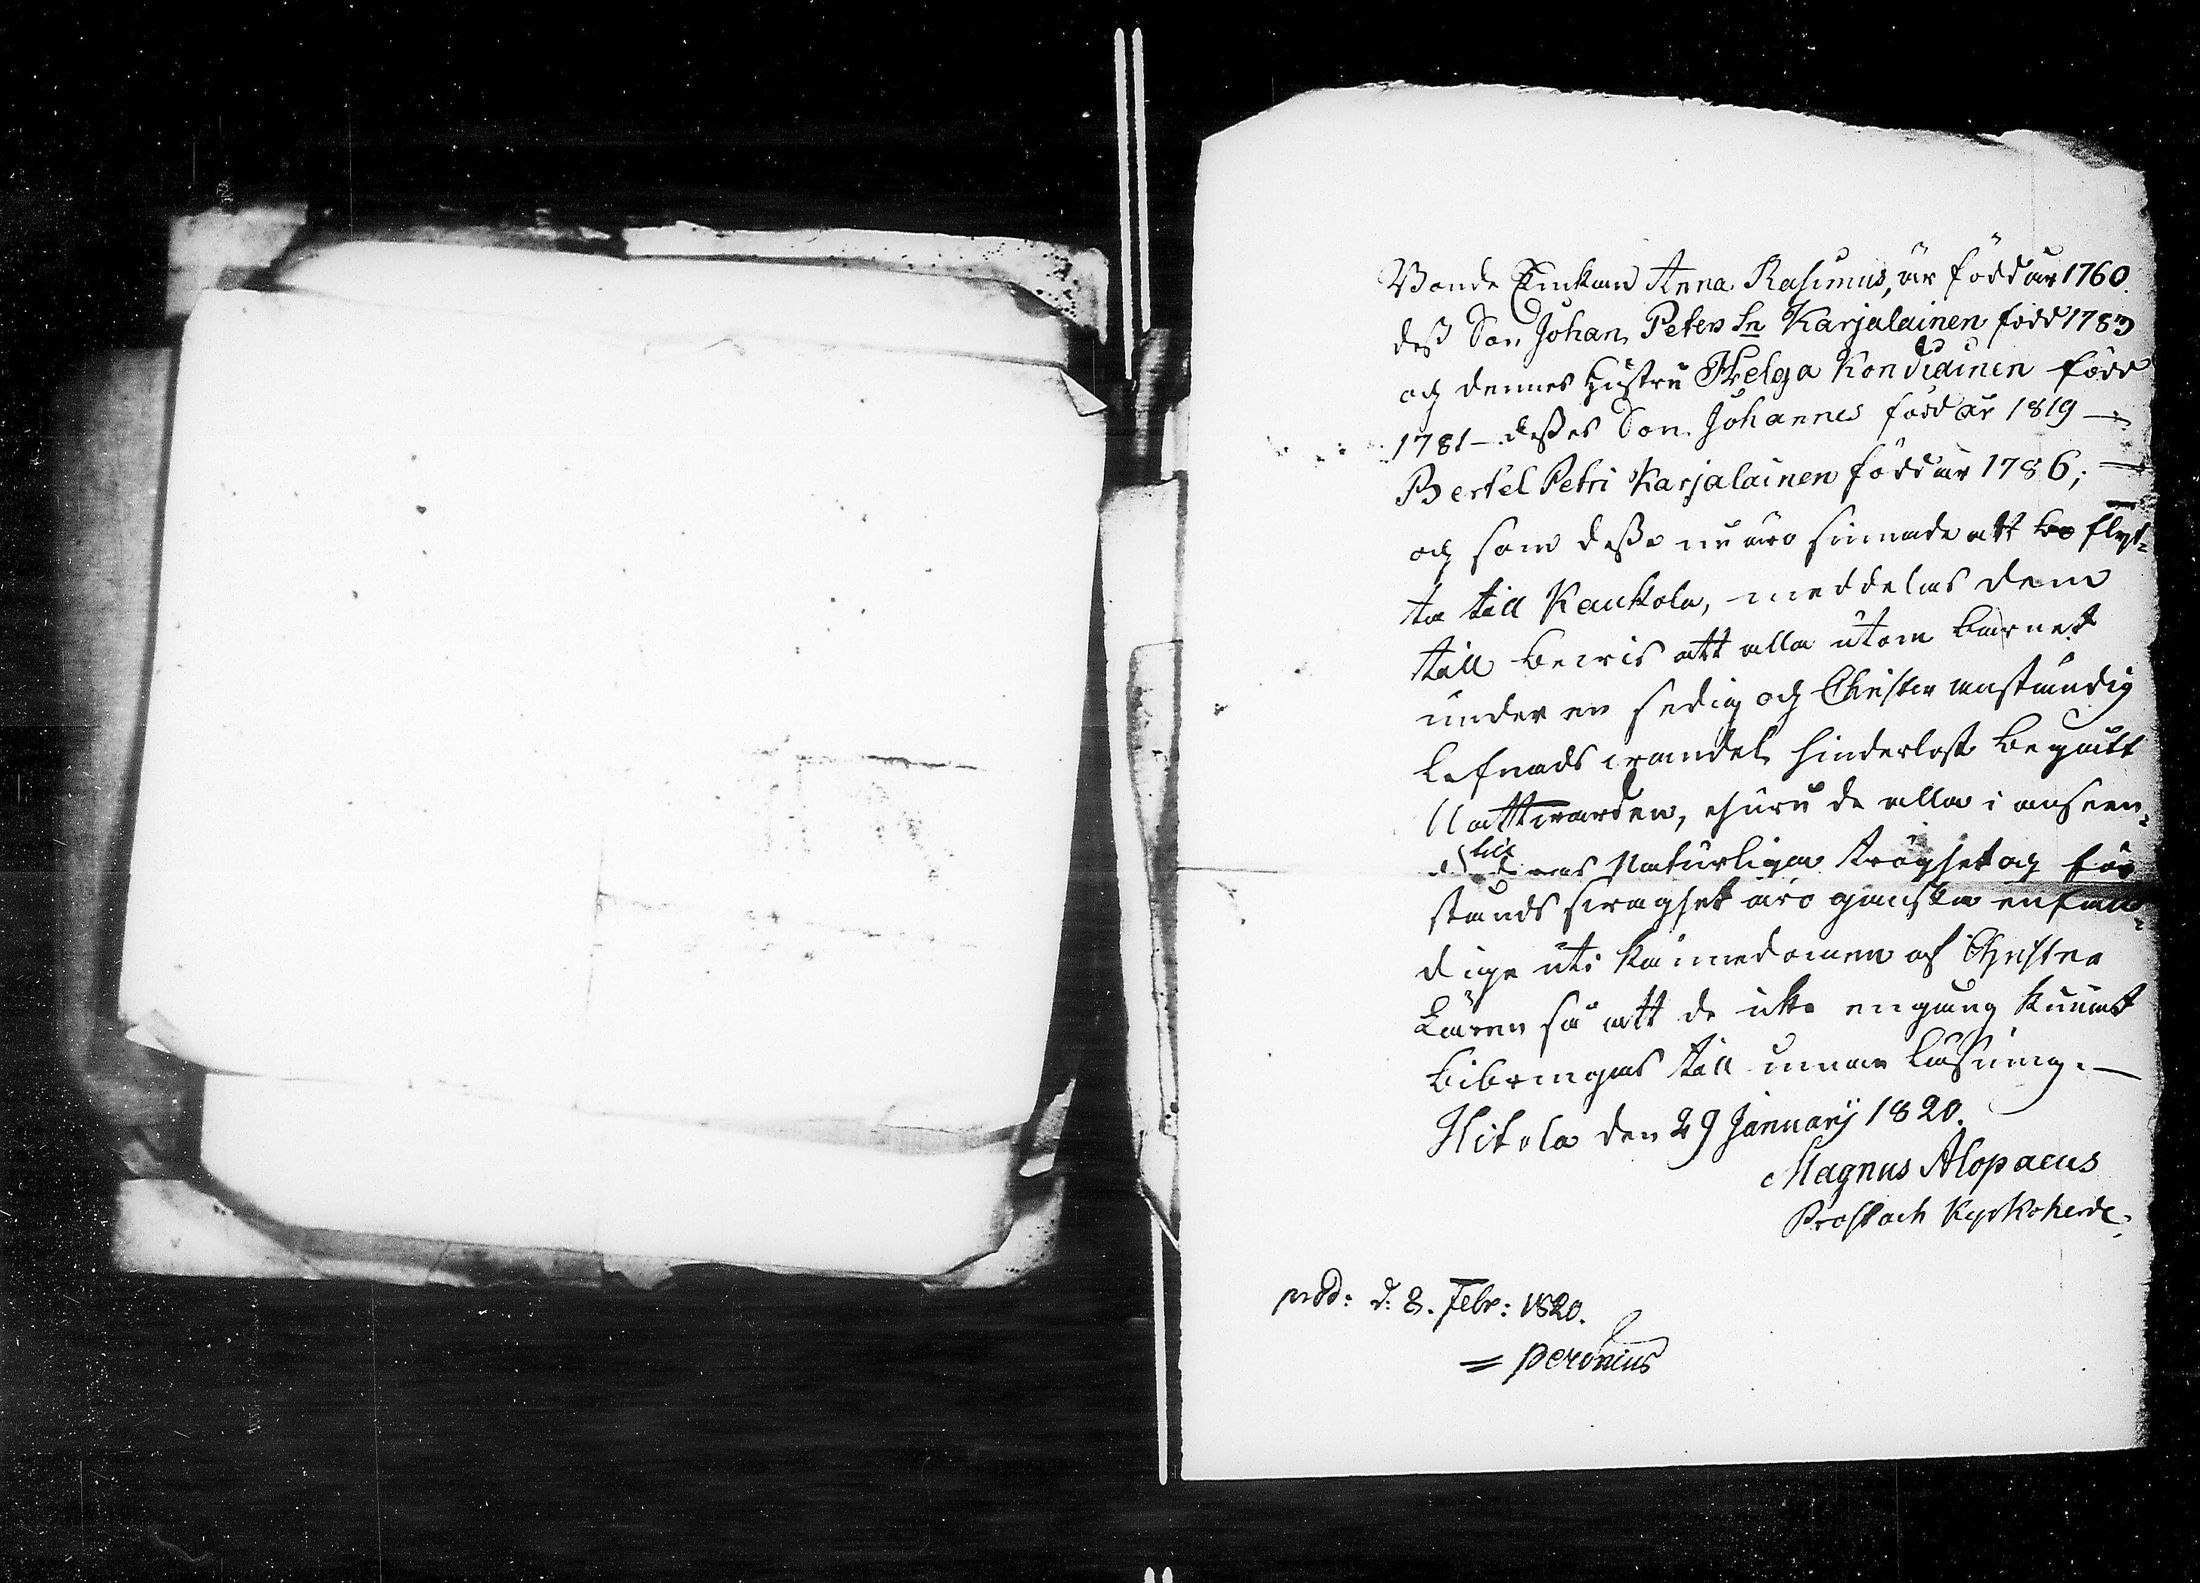 Bonde Enkan Anna Rasimus, är född år 1760.
deß Son Johan Peters Sn Karjalainen född 1783
och dennes Hustru Helga Kondiainen född
1781 - deßes Son Johannes född år 1819 -
Bertel Petri Karjalainen född år 1786; -
och som deße nu äro sinnade att flyt=
ta till Kaukola, meddelas dem
till bewis att alla utom barnet
under en sedig och Christen anständig
lefnads wandel hinderlöst begått
Nattwarden, ehuru de alla i anseen=
de till deras Naturliga tröghet och för
stånds swaghet äro ganska enfall=
dige uti kännedomen af Christna
Läran så att de icke engång kunnat
bibringas till innan läsning. -
Hitola den 29 Januarij 1820.
Magnus Alopaeus
Prost och Kyrkoherde.
prod: d: 8. Febr: 1820.
= Peronius